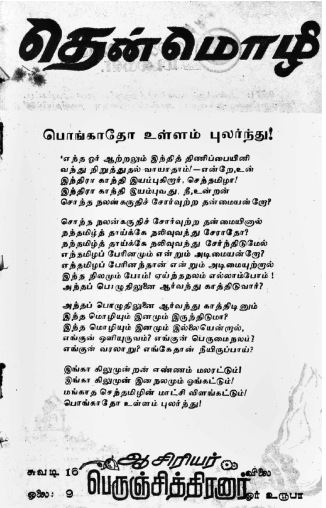 தென்மொழி
பொங்காதோ உள்ளம் புலர்ந்து!
'எந்த ஓர் ஆற்றலும் இந்தித் திணிப்பையினி
வந்து நிறுத்துதல் வாயாதாம்!—என்றே, உன்
இந்திரா காந்தி இயம்புகிறார். செத்தமிழா!
இந்திரா காந்தி இயம்புவது. நீ, உன்றன்
சொந்த நலங்கருதிச் சோர்வுற்ற தன்மையன்றோ?
சொந்த நலங்கருதிச் சோர்வுற்ற தன்மையினால்
நந்தமிழ்த் தாய்க்கே நலிவுவந்து சேராதோ?
நந்தமிழ்த் தாய்க்கே நலிவுவந்து சேர்ந்திடுமேல்
எந்தமிழப் பேரினமும் என்றும் அடிமையன்றோ?
எந்தமிழப் பேரினந்தான் என்றும் அடிமையுற்றால்
இந்த நிலமும் போம்! ஏய்ந்தநலம் எல்லாம்போம்!
அந்தப் பொழுதிலுனை ஆர்வந்து காத்திடுவார்?
அந்தப் பொழுதிலுனை ஆர்வந்து காத்திடினும்
இந்த மொழியும் இனமும் இருந்திடுமா?
இந்த மொழியும் இனமும் இல்லையென்றால்,
எங்குன் ஒளியுருவம்? எங்குன் பெருமைநலம்?
எங்குன் வரலாறு? எங்கேதான் நீயிருப்பாய்?
இங்கா கிலுமுன்றன் எண்ணம் மலரட்டும்!
இங்கா கிலுமுன் இனநலமும் ஓங்கட்டும்!
மங்காத செத்தமிழின் மாட்சி விளங்கட்டும்!
பொங்காதோ உள்ளம் புலர்ந்து!
சுவடி 16 ஆசிரியர் விலை
ஓலை: 9 பெருஞ்சித்திரனார் ஓர் உருபா